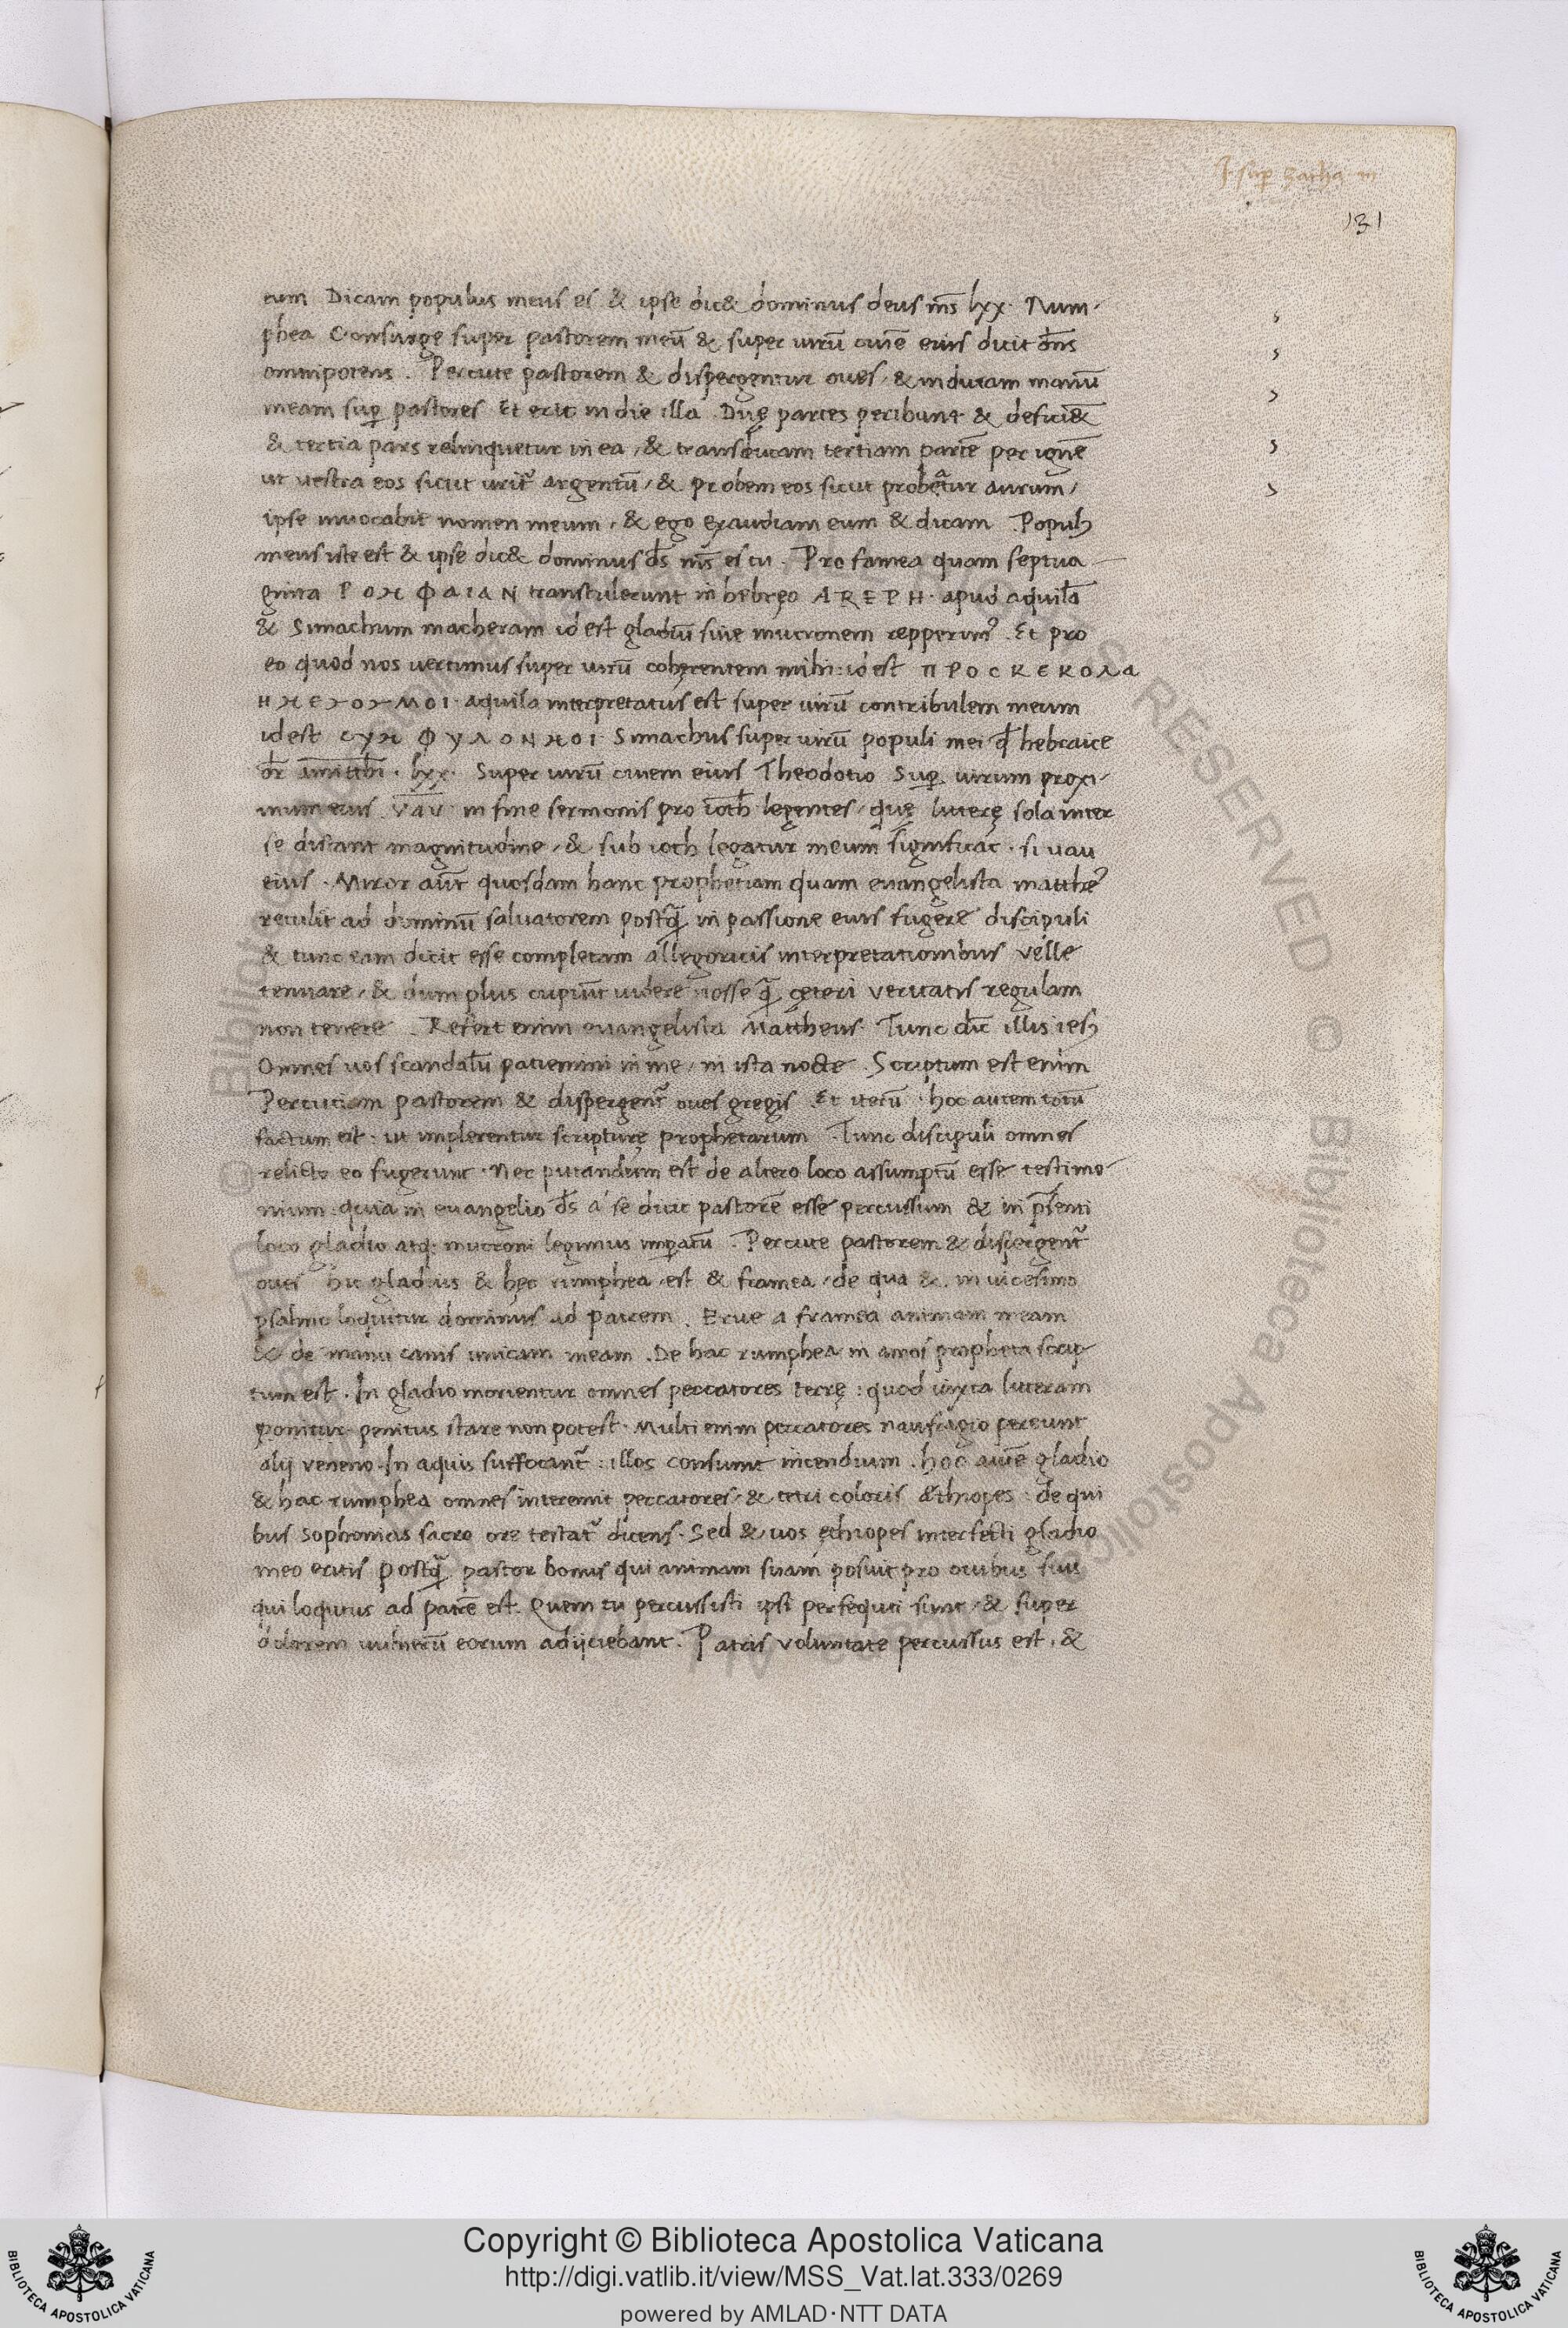 J sup zacha m
131
eum Dicam populus meus es & ipse dic& dominus deus m̄s lxx. Rum-
phea Consurge super pastorem meū & super uirū ciuē eius dicit dn̄s
omnipotens. Percute pastorem & dispergentur oues, & inducam manū
meam sup pastores Et erit in die illa. Duę partes peribunt & deficiē&
& tertia pars relinquetur in ea, & transducam tertiam partē per ignē
ut uestra eos sicut urit argentū, & probem eos sicut probętur aurum,
ipse inuocabit nomen meum, & ego exaudiam eum & dicam. Popul
meus iste est & ipse dic& dominus ds̄ ms̄ es tu. Pro famea quam septua-
ginta ΡΟΜΦΑΙΑΝ transtulerunt in hebręo AREPH. apud aquilā
& Simachum macheram id est gladiū siue mucronem repperim. Et pro
eo quod nos uertimus super uirū coherentem mihi: id est ΠΡΟСΚΕΚΟΛΑ
aquila interpretatus est super uirū contribulem meum
id est СΥΜΦΥΛΟΝΜΟΙ Simachus super uirū populi mei qd̄ hebraice
dr̄ amittħi. lxx. Super uirū ciuem eius Theodotio Sup uirum proxi-
mum eius. vav in fine sermonis pro iotħ legentes, quę litterę sola inter
se distant magnitudine, & sub ioth legatur meum significat. si uau
eius. Miror aūt quosdam hanc prophetiam quam euangelista matthe
retulit ad dominū saluatorem postq̄ in passione eius fugere discipuli
& tunc eam dicit esse completam allegoricis interpretationibus velle
tenuare, & dum plus cupiūt uidere nosse q̄ ceteri veritatis regulam
non tenere. Refert enim euangelista Mattheus Tunc dīc illis ies
Omnes uos scandalū patiemini in me, in ista nocte. Scriptum est enim
Percutiam pastorem & dispergent oues gregis. Et iterū. hoc autem totū
factum est: ut implerentur scripturę prophetarum. Tunc discipuli omnes
relicto eo fugerunt. Nec putandum est de altero loco assumptū esse testimo-
nium: quia in euangelio ds̄ a se dicit pastorē esse percussum & in pn̄senti
loco gladio atq; mucroni legimus imperatū. Percute pastorem & dispergent
oues Hic gladius & hęc rumphea, est & framea, de qua &. in uicesimo
psalmo loquitur dominus ad patrem. Erue a framea animam meam
& de manu canis unicam meam. De hac rumphea in amos propheta scrip
tum est. In gladio morientur omnes peccatores terrę: quod iuxta litteram
ponitur penitus stare non potest. Multi enim peccatores naufragio pereunt
alij veneno. In aquis suffocant: illos consumit incendium. hoc autē gladio
& hac rumphea omnes interemit peccatores, & tetri coloris Æthiopes: de qui
bus Sophonias sacro ore testat dicens. Sed & uos ęthiopes interfecti gladio
meo eritis postq̄ pastor bonus qui animam suam posuit pro ouibus suis
qui loqutus ad patrē est. Quem tu percussisti ipsi persequti sunt, & super
dolorem uulnerū eorum adijciebant. Patris voluntate percussus est, &
Copyright © Biblioteca Apostolica Vaticana
http://digi.vatlib.it/view/MSS_Vat.lat.333/0269
powered by AMLAD·NTT DATA